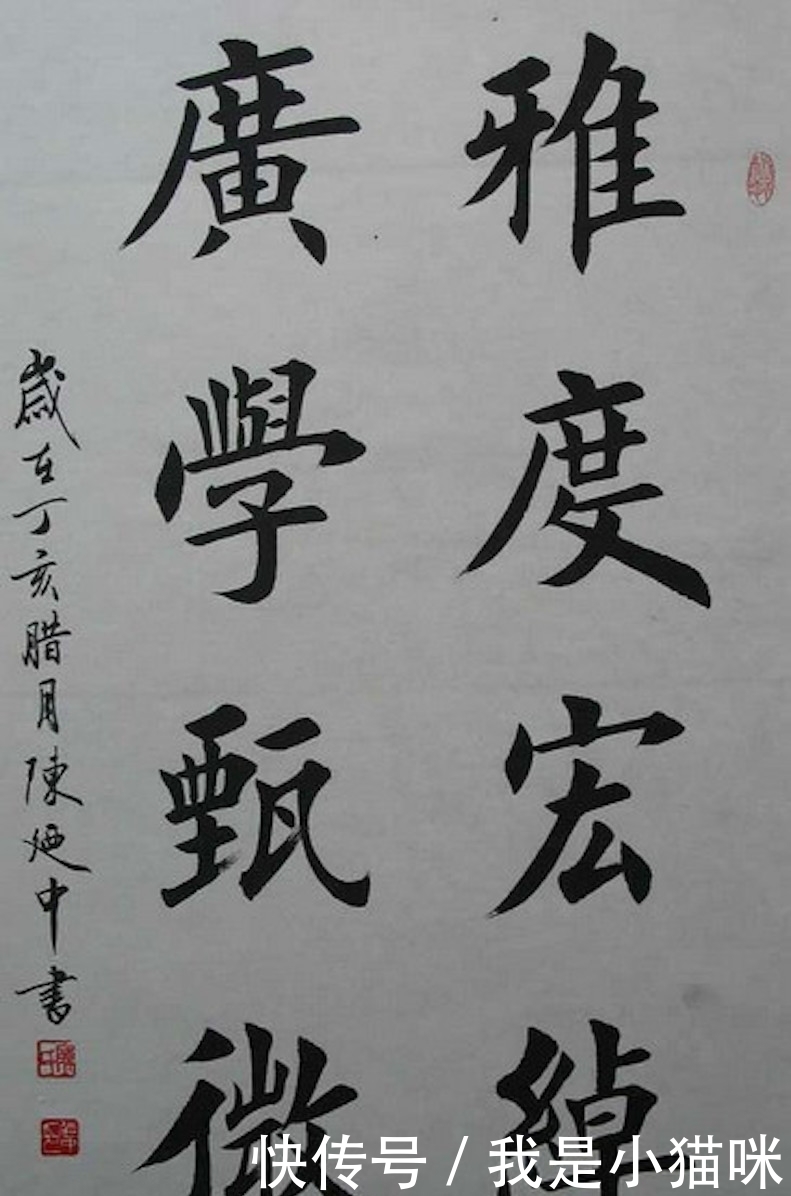 雅度宏綽
廣學甄微
歲在丁亥腊月陳廼中書
快传号 / 我是小猫咪